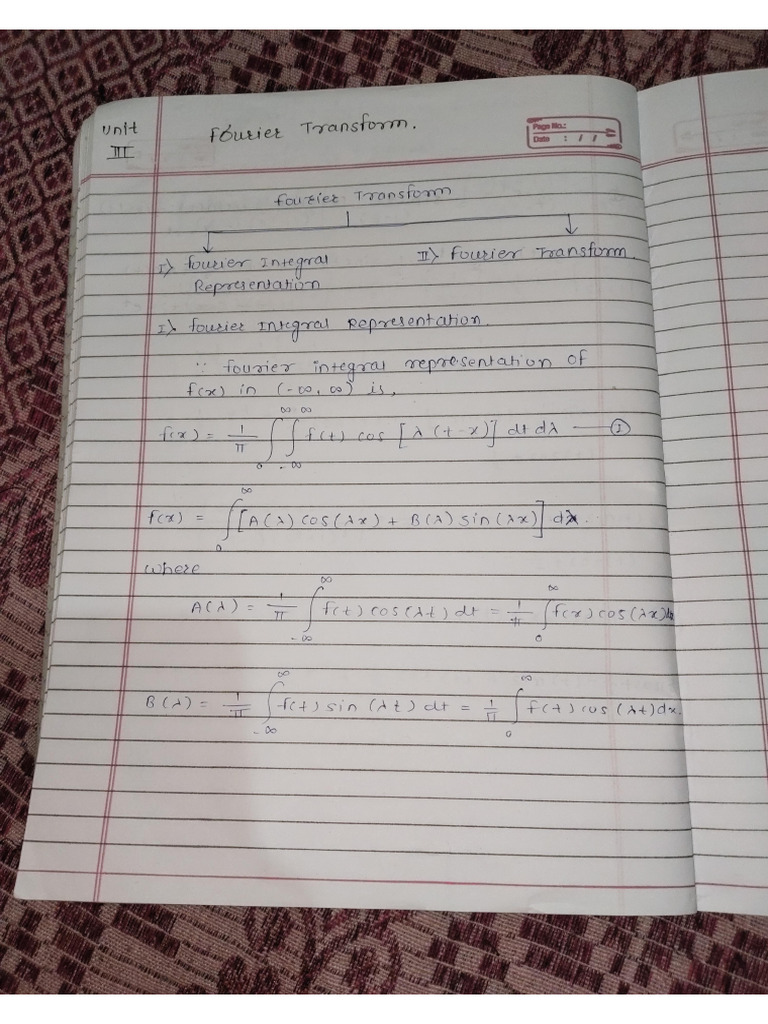 Unit III
Fourier Transform.
Page No.:
Date : / /
Fourier Transform
I) Fourier Integral Representation
II) Fourier Transform.
I) Fourier Integral Representation.
∵ fourier integral representation of
f(x) in (-∞, ∞) is,
f(x) = 1/π ∫₀^∞ ∫₋∞^∞ f(t) cos [λ(t-x)] dt dλ — (I)
f(x) = ∫₀^∞ [A(λ) cos(λx) + B(λ) sin(λx)] dλ.
where
A(λ) = 1/π ∫₋∞^∞ f(t) cos(λt) dt = 1/π ∫₀^∞ f(x) cos(λx) dx
B(λ) = 1/π ∫₋∞^∞ f(t) sin(λt) dt = 1/π ∫₀^∞ f(t) cos(λt) dx.